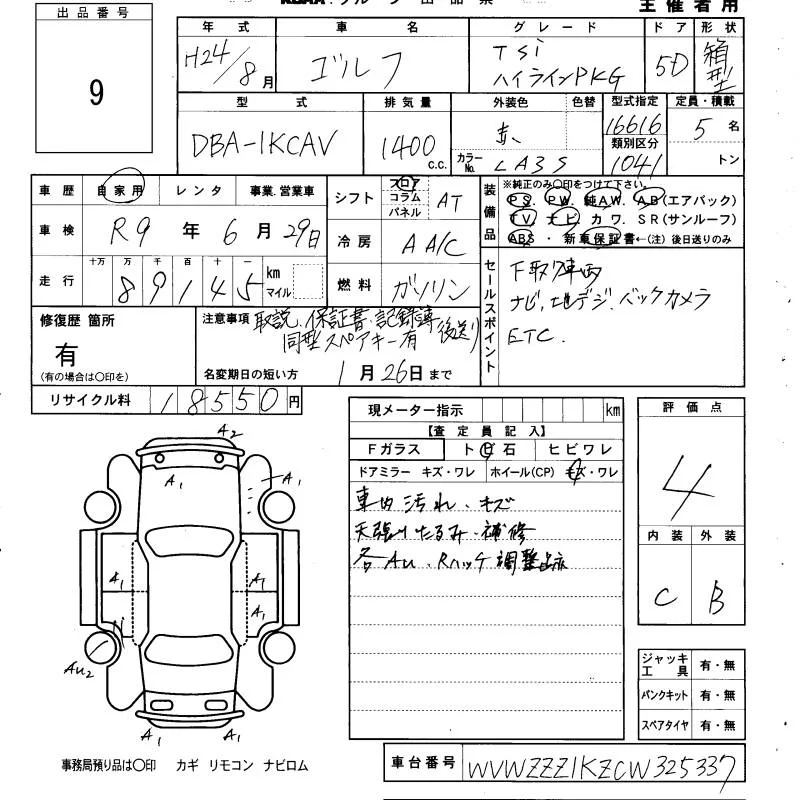 出品番号
9
主催者用
年式 車名 グレード ドア 形状
H24/8月 ゴルフ TSi ハイラインPKG 5D 箱型
型式 排気量 外装色 色替 型式指定 定員・積載
DBA-1KCAV 1400 C.C. 赤 16616 5名
カラーNo. LA3S 類別区分 1041 トン
車歴 自家用 レンタ 事業.営業車 シフト フロア コラム パネル AT
装備品 ※純正のみ○印をつけて下さい。
PS. PW. 純AW. AB(エアバック)
TV ナビ カワ. SR(サンルーフ)
ABS ・ 新車保証書←(注) 後日送りのみ
車検 R9年6月29日 冷房 AA/C
走行 十万 万 千 百 十 一
89145 km マイル 燃料 ガソリン
セールスポイント
下取車両
ナビ,地デジ,バックカメラ
ETC.
修復歴 箇所
有
(有の場合は○印を)
注意事項 取説、保証書、記録簿 後送り
同型スペアキー有
名変期日の短い方 1月26日まで
リサイクル料 18550円
現メーター指示 km
【査定員記入】
Fガラス トビ石 ヒビワレ
ドアミラー キズ・ワレ ホイール(CP) キズ・ワレ
車内汚れ・キズ
天張りたるみ・補修
各AU.Rハッチ調整
評価点
4
内装 外装
C B
A2
A1 A1
A1 A1
A1
AU2
A1 A1
ジャッキ工具 有・無
パンクキット 有・無
スペアタイヤ 有・無
事務局預り品は○印 カギ リモコン ナビロム
車台番号 WVWZZZ1KZCW325337